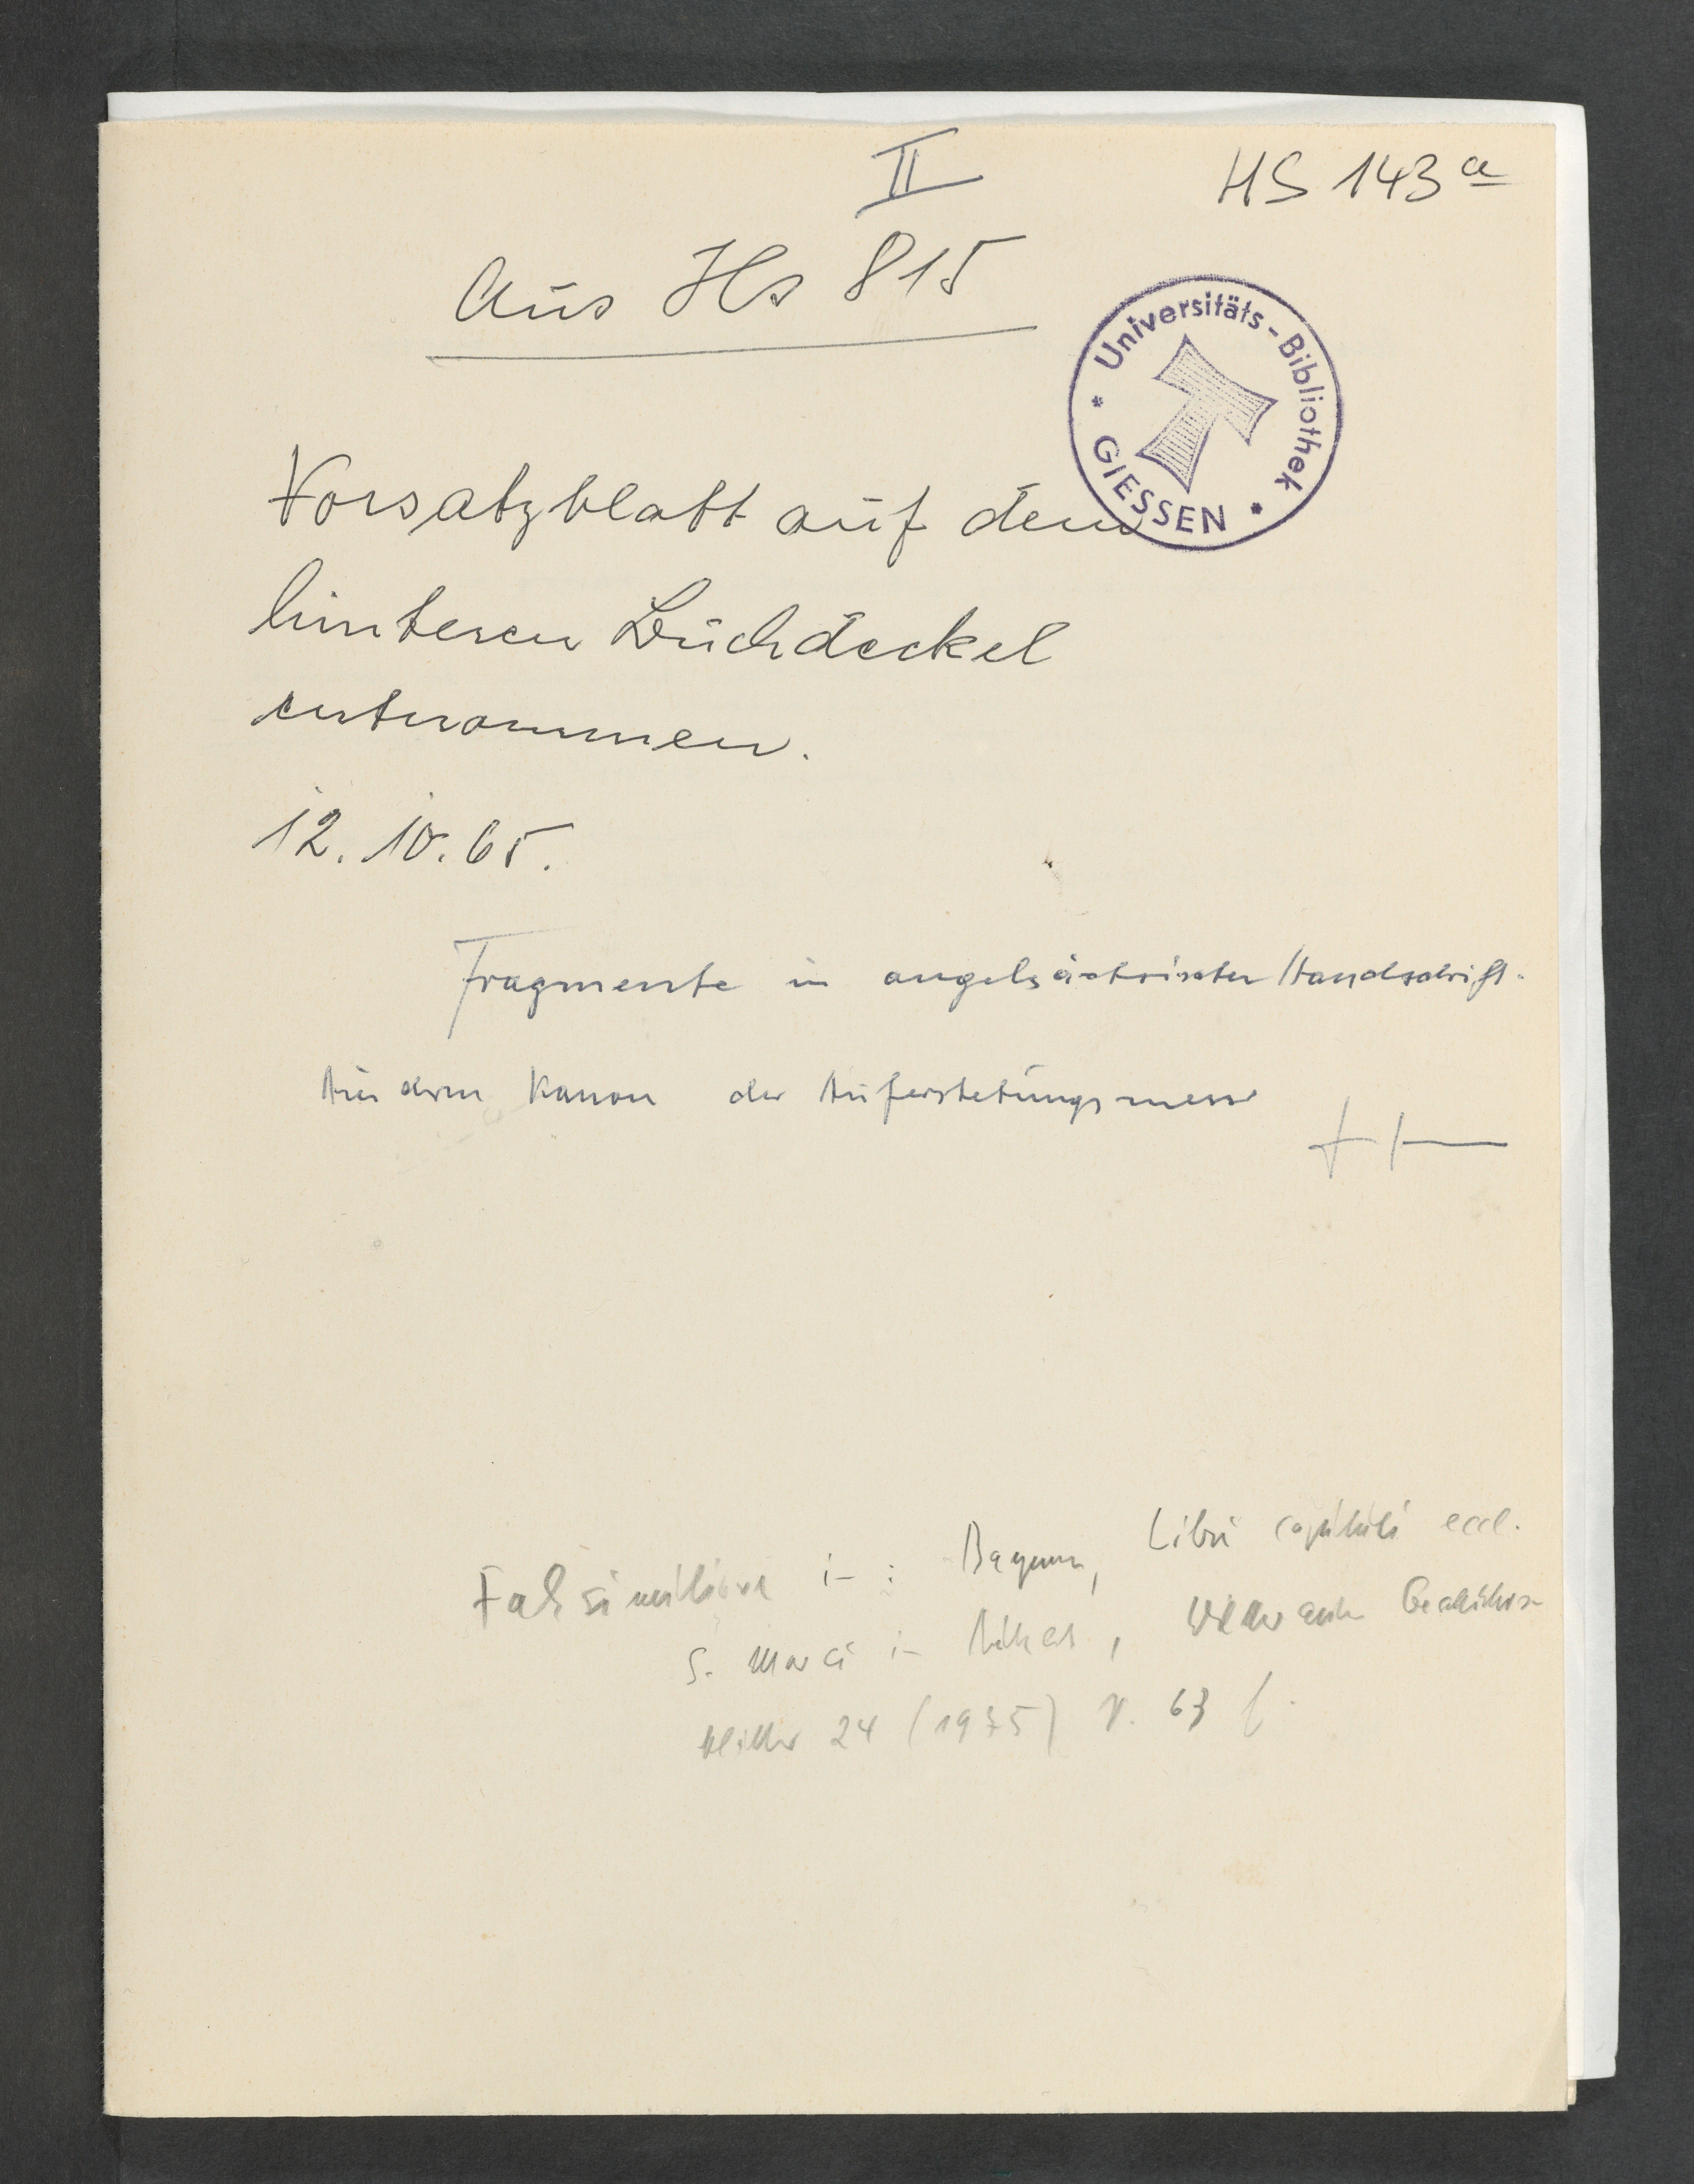 II
HS 143 a
Aus Hs 815
Universitäts-Bibliothek
* GIESSEN *
Vorsatzblatt auf dem
hinteren Buchdeckel
entnommen.
12.10.65.
Fragmente in angelsächsischer Handschrift.
Aus dem Kanon der Auferstehungsmesse
Faksimiliert in: Bayerer, Libri capituli eccl.
S. Marci in Butzbach, Wetterauer Geschichts-
blätter 24 (1975) S. 63 f.